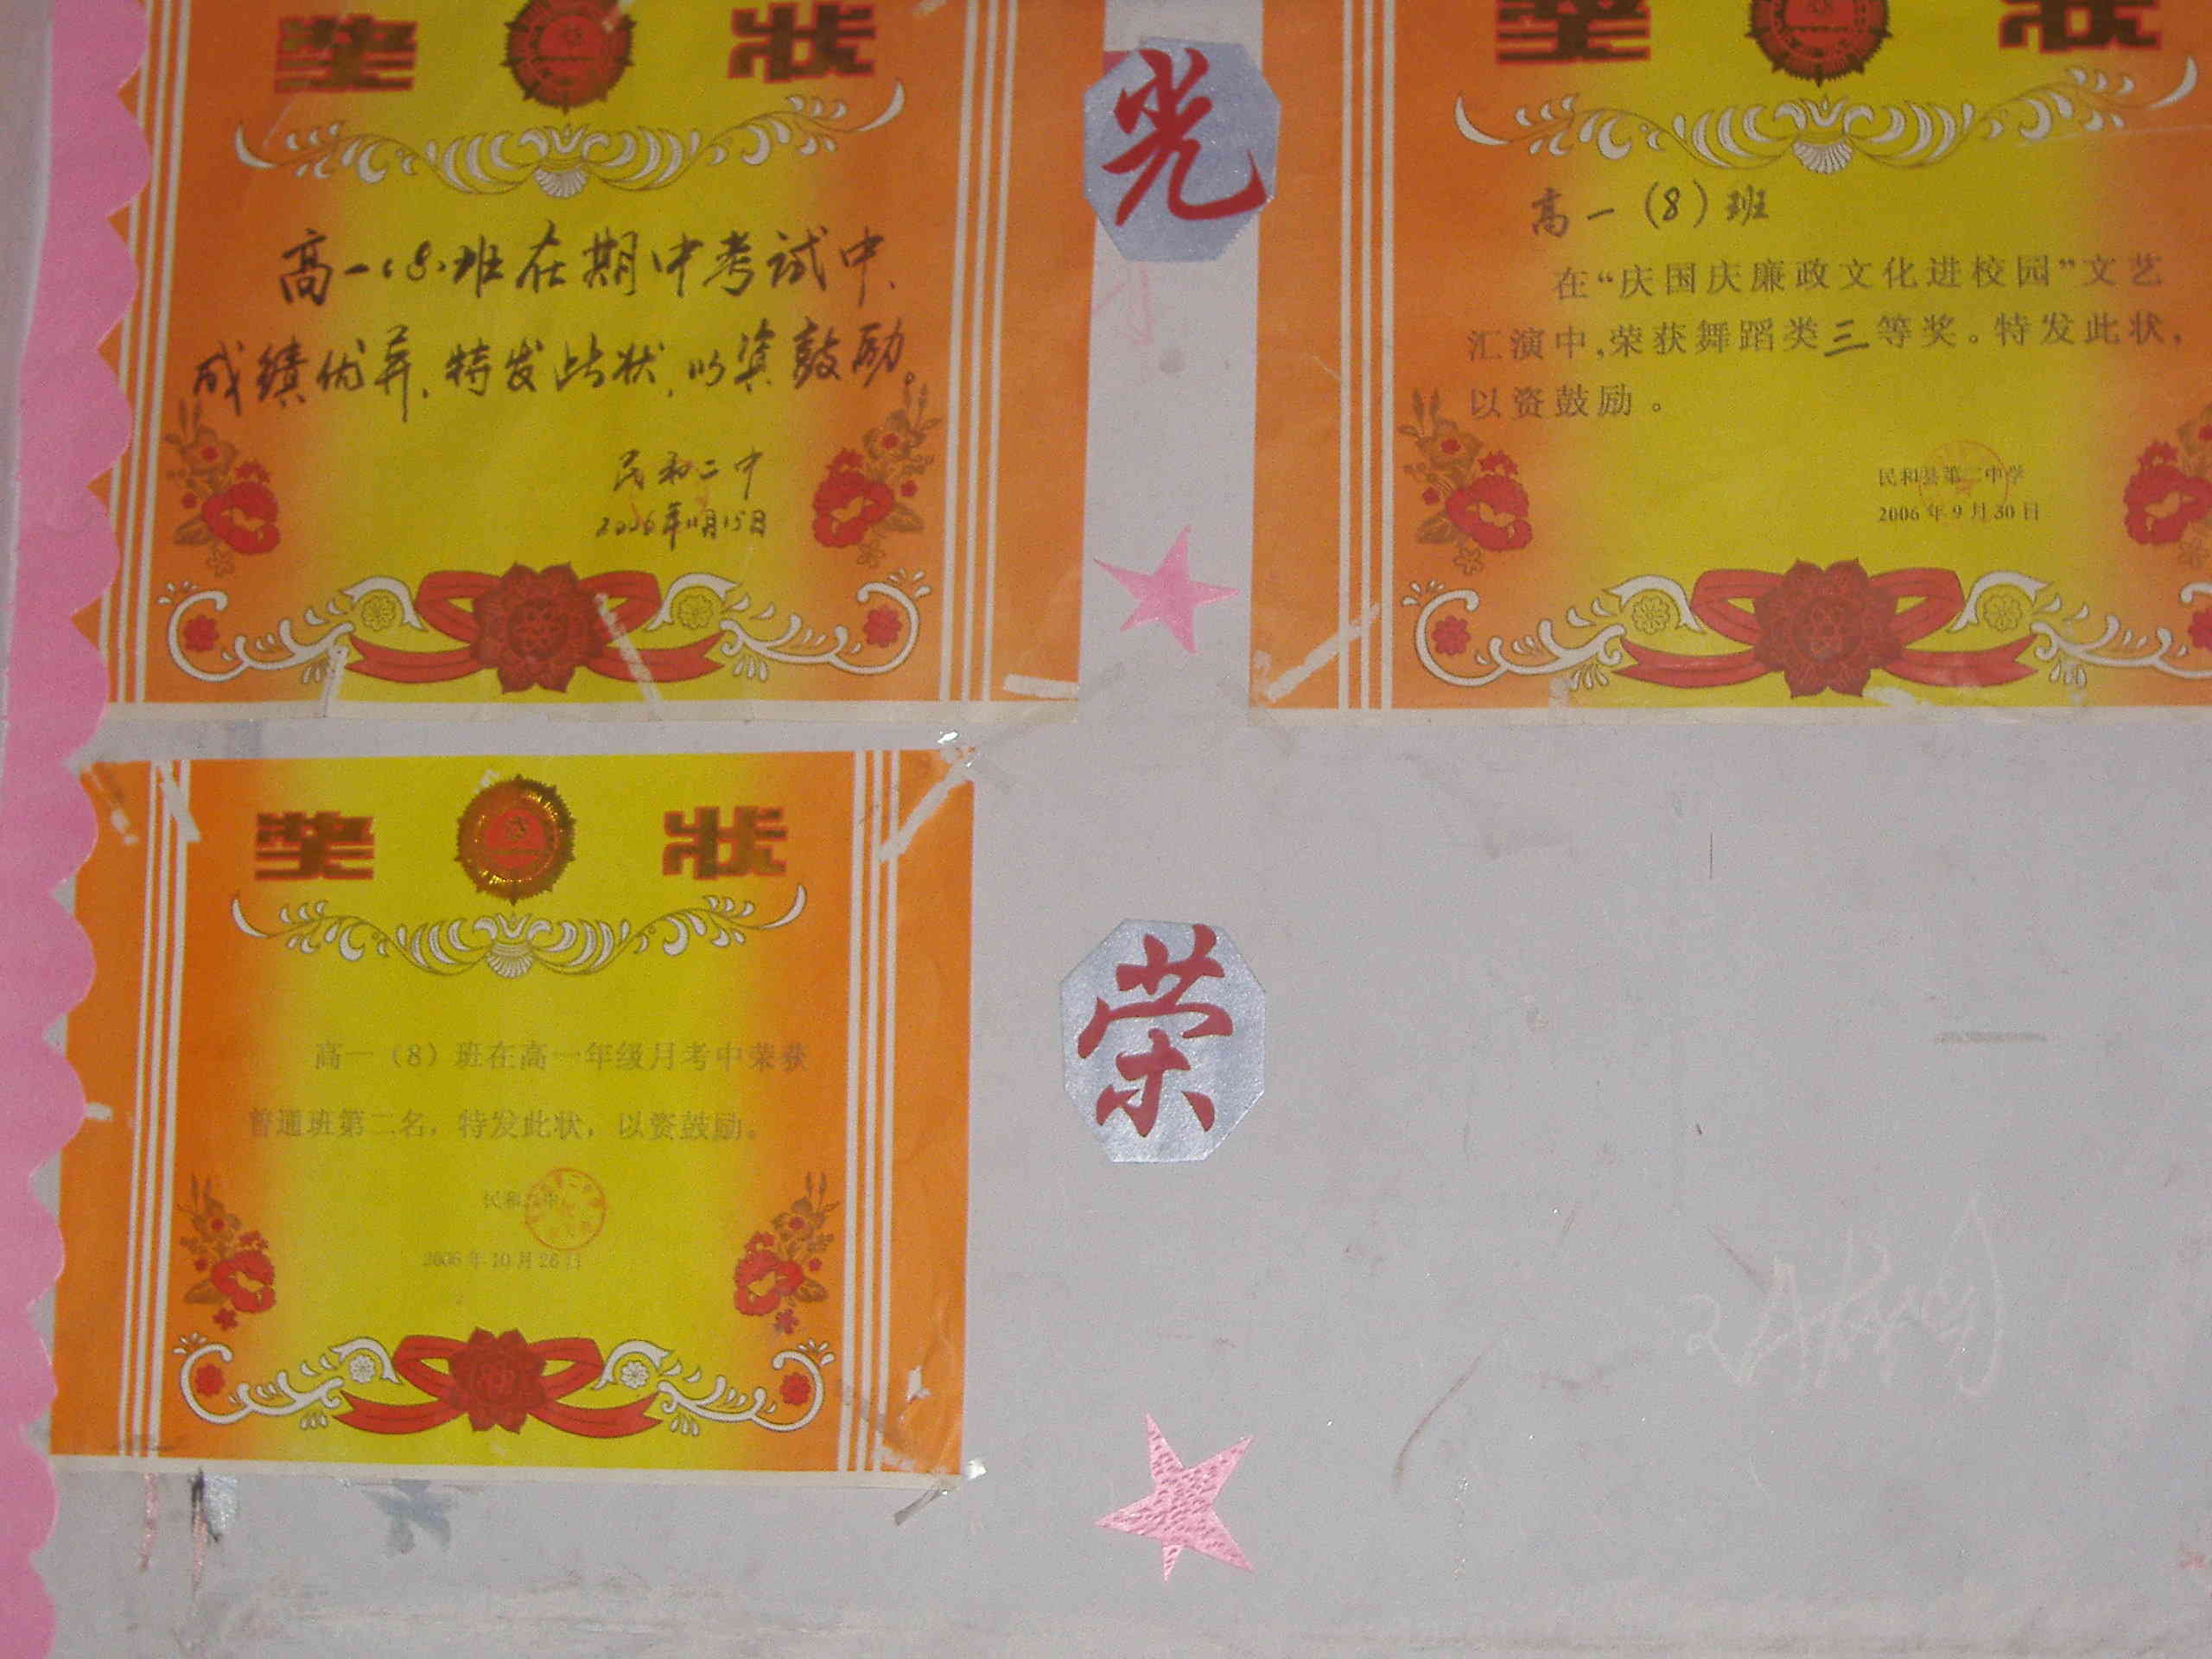 奖 状
高一(8)班在期中考试中,
成绩优异,特发此状,以资鼓励。
民和二中
2006年11月15日
光
奖 状
高一(8)班
在“庆国庆廉政文化进校园”文艺
汇演中,荣获舞蹈类三等奖。特发此状,
以资鼓励。
民和县第二中学
2006年9月30日
奖 状
高一(8)班在高一年级月考中荣获
普通班第二名,特发此状,以资鼓励。
民和二中
2006年10月26日
荣